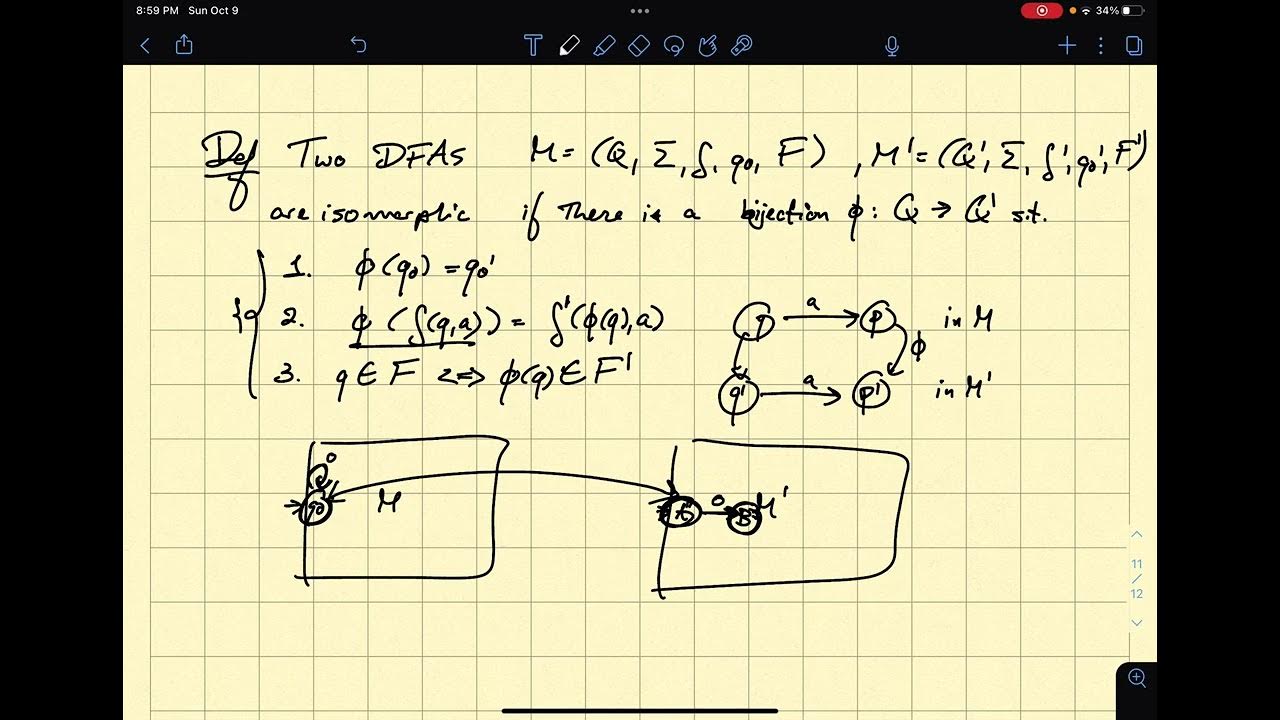 8:59 PM Sun Oct 9
34%
Def Two DFAs M = (Q, Σ, δ, q0, F) , M' = (Q', Σ, δ', q0', F')
are isomorphic if there is a bijection ϕ: Q → Q' s.t.
1. ϕ(q0) = q0'
2. ϕ(δ(q,a)) = δ'(ϕ(q),a)
3. q ∈ F <=> ϕ(q) ∈ F'
a
q p in M
ϕ
a
q' p' in M'
0
q0 M
0
A B M'
11
/
12